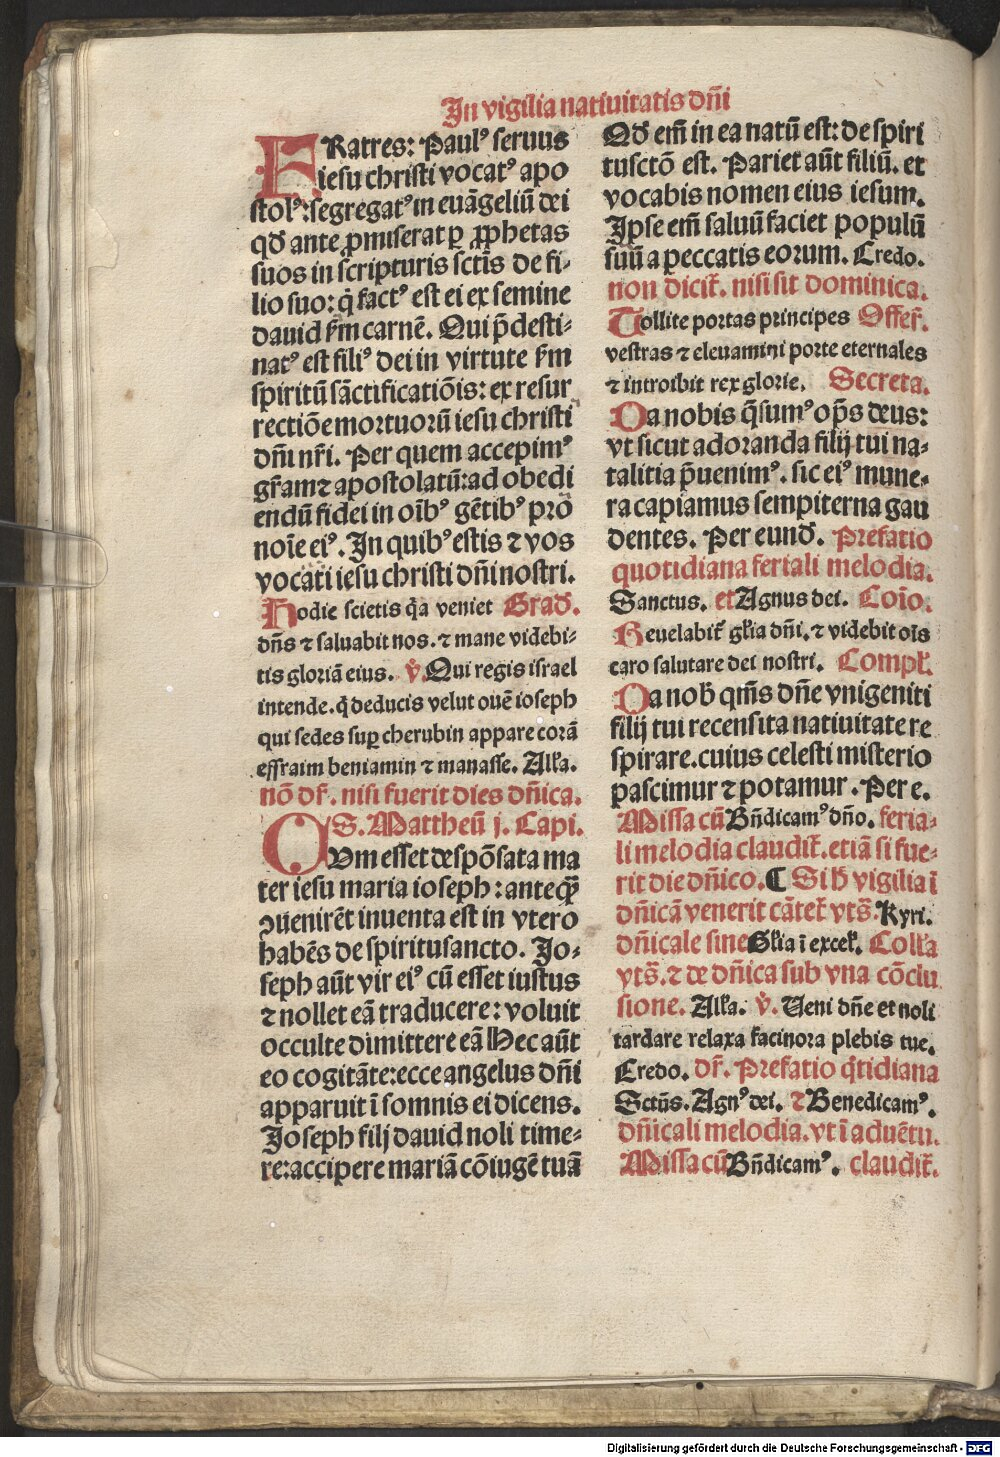 In vigilia natiuitatis dñi
FRatres: Paulꝰ seruus
iesu christi vocatꝰ apo
stolꝰ: segregatꝰ in euāgeliū dei
qđ ante ꝓmiserat ꝑ ꝓphetas
suos in scripturis sctis de fi⸗
lio suo: q̇ factꝰ est ei ex semine
dauid ẜm carnē. Qui p̄desti⸗
natꝰ est filiꝰ dei in virtute ẜm
spiritū sāctificatiōis: ex resur
rectiōe mortuorū iesu christi
dñi nr̄i. Per quem accepimꝰ
gr̄am ⁊ apostolatū: ad obedi
endū fidei in oībꝰ gētibꝰ pro
noīe eiꝰ. In quibꝰ estis ⁊ vos
vocati iesu christi dñi nostri.
Hodie scietis q̇a veniet Grad̄.
dñs ⁊ saluabit nos. ⁊ mane videbi⸗
tis gloriā eius. ℣. Qui regis israel
intende. q̇ deducis velut ouē ioseph
qui sedes suꝑ cherubin appare corā
effraim beniamin ⁊ manasse. All'a.
nō dr̄. nisi fuerit dies dñica.
S. Mattheū j. Capi.
CVm esset despōsata ma
ter iesu maria ioseph: anteq̄ꝫ
ꝯuenirēt inuenta est in vtero
habēs de spiritusancto. Jo⸗
seph aūt vir eiꝰ cū esset iustus
⁊ nollet eā traducere: voluit
occulte dimittere eā Hec aūt
eo cogitāte: ecce angelus dñi
apparuit ī somnis ei dicens.
Joseph filj dauid noli time⸗
re: accipere mariā cōiugē tuā
Qđ em̄ in ea natū est: de spiri
tusctō est. Pariet aūt filiū. et
vocabis nomen eius iesum.
Ipse em̄ saluū faciet populū
suū a peccatis eorum. Credo.
non dicit᷑. nisi sit dominica.
Tollite portas principes Offer̄.
vestras ⁊ eleuamini porte eternales
⁊ introibit rex glorie. Secreta.
Da nobis q̄sumꝰ op̄s deus:
vt sicut adoranda filij tui na⸗
talitia p̄uenimꝰ. sic eiꝰ mune⸗
ra capiamus sempiterna gau
dentes. Per eund̄. Prefatio
quotidiana feriali melodia.
Sanctus. et Agnus dei. Coīo.
Reuelabit᷑ gl'ia dñi. ⁊ videbit oīs
caro salutare dei nostri. Compl'.
Da nob̄ qm̄s dñe vnigeniti
filij tui recensita natiuitate re
spirare. cuius celesti misterio
pascimur ⁊ potamur. Per e.
Missa cū Bñdicamꝰ dño. feria⸗
li melodia claudit᷑. etiā si fue⸗
rit die dñico. ¶ Si h̄ vigilia ī
dñicā venerit cātet᷑ vts̄. Kyri.
dñicale sine Gl'ia ī excel'. Coll'a
vts̄. ⁊ de dñica sub vna cōclu
sione. All'a. ℣. Veni dñe et noli
tardare relaxa facinora plebis tue.
Credo. dr̄. Prefatio q̇tidiana
Sctūs. Agnꝰ dei. ⁊ Benedicamꝰ.
dñicali melodia. vt ī aduētu.
Missa cū Bñdicamꝰ. claudit᷑.
Digitalisierung gefördert durch die Deutsche Forschungsgemeinschaft - DFG